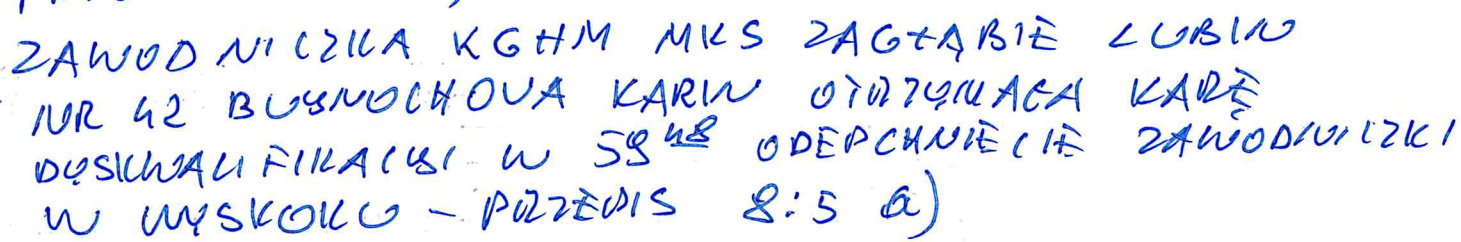 ZAWODNICZKA KGHM MKS ZAGŁĘBIE LUBIN
NR 42 BUJNOCHOVA KARIN OTRZYMAŁA KARĘ
DYSKWALIFIKACJI W 59 48 ODEPCHNIĘCIE ZAWODNICZKI
W WYSKOKU - PRZEPIS 8:5 a)